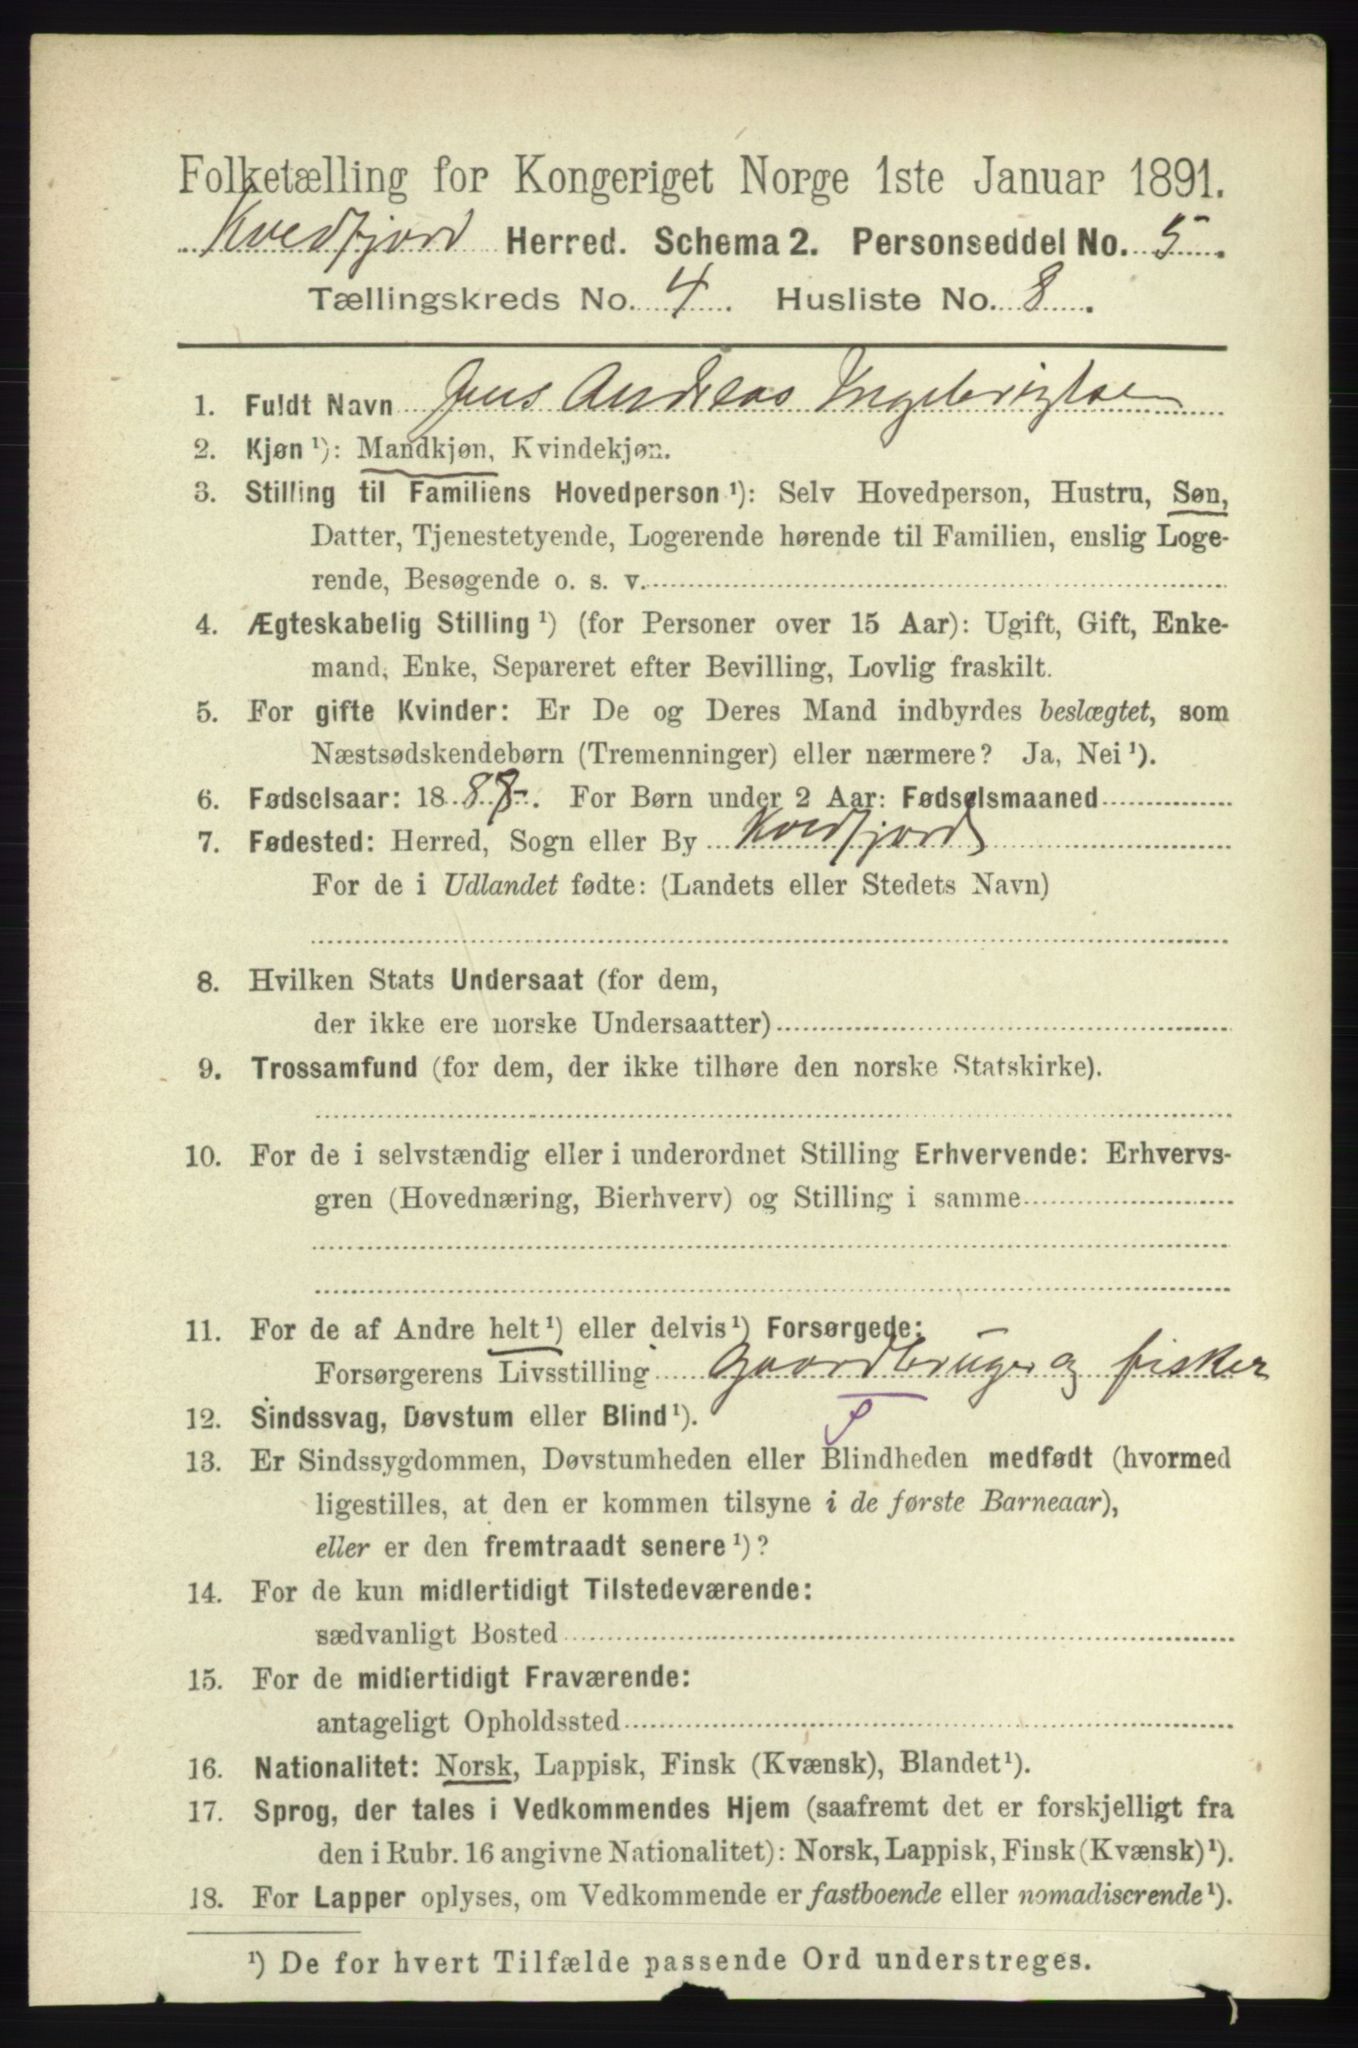 Folketælling for Kongeriget Norge 1ste Januar 1891.
Kvedfjord Herred. Schema 2. Personseddel No. 5.
Tællingskreds No. 4. Husliste No. 8.
1. Fuldt Navn Jens Andreas Ingebrigtsen
2. Kjøn ¹): Mandkjøn, Kvindekjøn.
3. Stilling til Familiens Hovedperson ¹): Selv Hovedperson, Hustru, Søn,
Datter, Tjenestetyende, Logerende hørende til Familien, enslig Loge-
rende, Besøgende o. s. v.
4. Ægteskabelig Stilling ¹) (for Personer over 15 Aar): Ugift, Gift, Enke-
mand, Enke, Separeret efter Bevilling, Lovlig fraskilt.
5. For gifte Kvinder: Er De og Deres Mand indbyrdes beslægtet, som
Næstsødskendebørn (Tremenninger) eller nærmere? Ja, Nei ¹).
6. Fødselsaar: 1888. For Børn under 2 Aar: Fødselsmaaned
7. Fødested: Herred, Sogn eller By Kvedfjord
For de i Udlandet fødte: (Landets eller Stedets Navn)
8. Hvilken Stats Undersaat (for dem,
der ikke ere norske Undersaatter)
9. Trossamfund (for dem, der ikke tilhøre den norske Statskirke).
10. For de i selvstændig eller i underordnet Stilling Erhvervende: Erhvervs-
gren (Hovednæring, Bierhverv) og Stilling i samme
11. For de af Andre helt ¹) eller delvis ¹) Forsørgede:
Forsørgerens Livsstilling Gaardbruger og fisker
12. Sindssvag, Døvstum eller Blind ¹).
13. Er Sindssygdommen, Døvstumheden eller Blindheden medfødt (hvormed
ligestilles, at den er kommen tilsyne i de første Barneaar),
eller er den fremtraadt senere ¹)?
14. For de kun midlertidigt Tilstedeværende:
sædvanligt Bosted
15. For de midlertidigt Fraværende:
antageligt Opholdssted
16. Nationalitet: Norsk, Lappisk, Finsk (Kvænsk), Blandet ¹).
17. Sprog, der tales i Vedkommendes Hjem (saafremt det er forskjelligt fra
den i Rubr. 16 angivne Nationalitet): Norsk, Lappisk, Finsk (Kvænsk) ¹).
18. For Lapper oplyses, om Vedkommende er fastboende eller nomadiserende ¹).
¹) De for hvert Tilfælde passende Ord understreges.